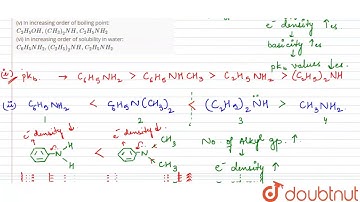 (v) In increasing order of boiling point:
C₂H₅OH, (CH₃)₂NH, C₂H₅NH₂
(vi) In increasing order of solubility in water:
C₆H₅NH₂, (C₂H₅)₂NH, C₂H₅NH₂
e⁻ density ↑es
basicity ↑es
pkb values ↓es.
(i) pkb. → C₆H₅NH₂ > C₆H₅NHCH₃ > C₂H₅NH₂ > (C₂H₅)₂NH
(ii) C₆H₅NH₂ < C₆H₅N(CH₃)₂ < (C₂H₅)₂NH > CH₃NH₂.
1 2 3 4
e⁻ density ↓ e⁻ density ↓.
N H H < N CH₃ CH₃
No. of Alkyl gp. ↑
e⁻ density ↑
doubtnut